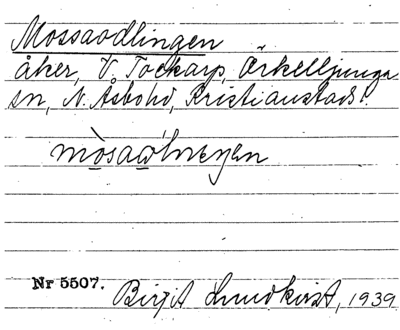 Mossaodlingen
åker, V. Tockarp, Örkelljunga
sn, N. Åsbohd, Kristianstads l.
Nr 5507. Birgit Lundkvist, 1939